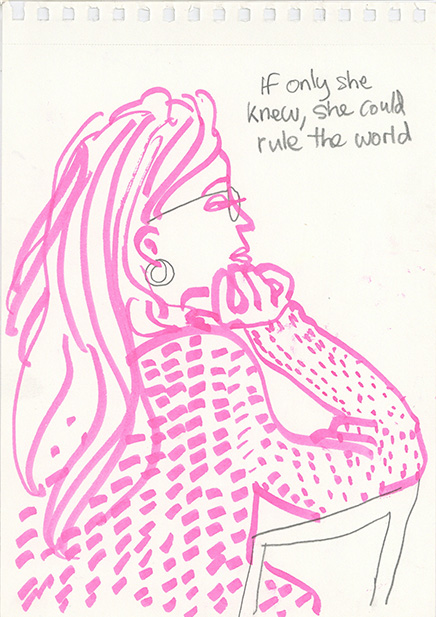 If only she
knew, she could
rule the world